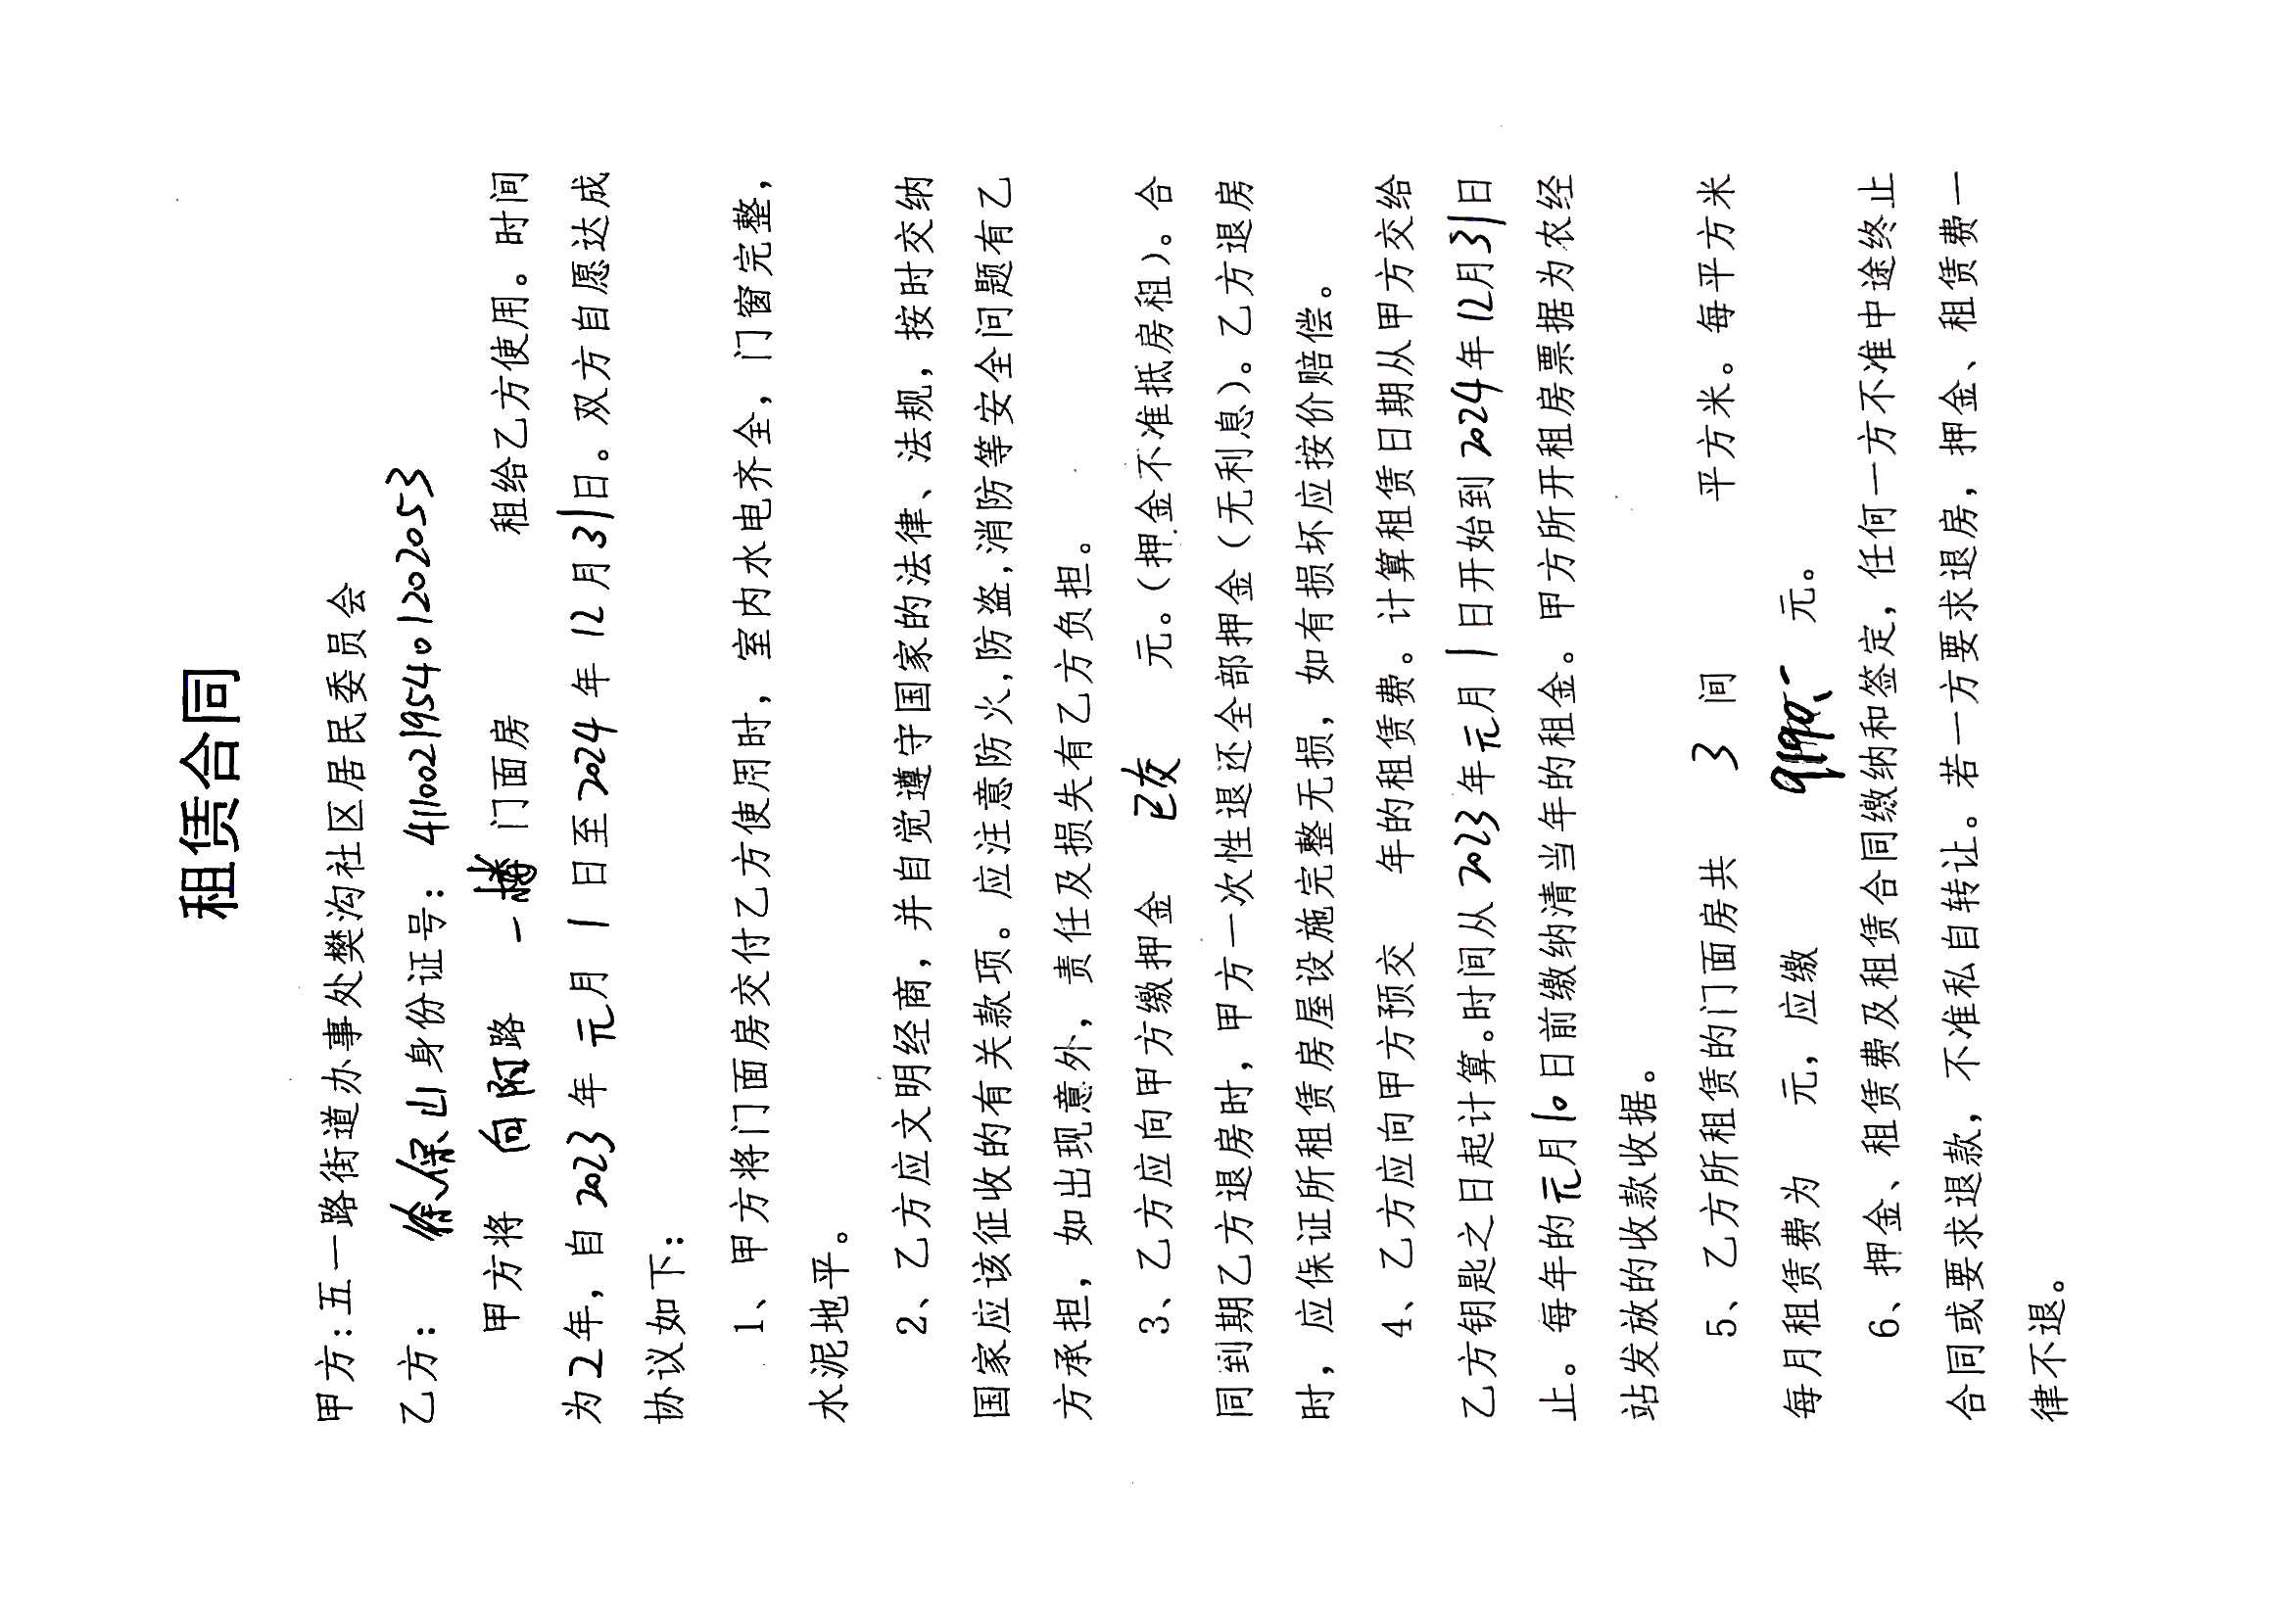 租赁合同
甲方：五一路街道办事处樊沟社区居民委员会
乙方：徐保山身份证号：411002195401202053
甲方将 向阳路 一楼 门面房 租给乙方使用。时间
为2年，自2023年元月1日至2024年12月31日。双方自愿达成
协议如下：
1、甲方将门面房交付乙方使用时，室内水电齐全，门窗完整，
水泥地平。
2、乙方应文明经商，并自觉遵守国家的法律、法规，按时交纳
国家应该征收的有关款项。应注意防火,防盗,消防等安全问题有乙
方承担，如出现意外，责任及损失有乙方负担。
3、乙方应向甲方缴押金 已交 元。（押金不准抵房租）。合
同到期乙方退房时，甲方一次性退还全部押金（无利息）。乙方退房
时，应保证所租赁房屋设施完整无损，如有损坏应按价赔偿。
4、乙方应向甲方预交 年的租赁费。计算租赁日期从甲方交给
乙方钥匙之日起计算。时间从2023年元月1日开始到2024年12月31日
止。每年的元月10日前缴纳清当年的租金。甲方所开租房票据为农经
站发放的收款收据。
5、乙方所租赁的门面房共 3 间 平方米。每平方米
每月租赁费为 元，应缴 元。
6、押金、租赁费及租赁合同缴纳和签定，任何一方不准中途终止
合同或要求退款，不准私自转让。若一方要求退房，押金、租赁费一
律不退。